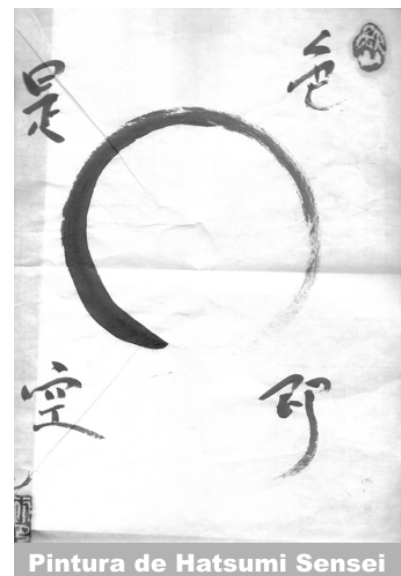 色
即
是
空
Pintura de Hatsumi Sensei